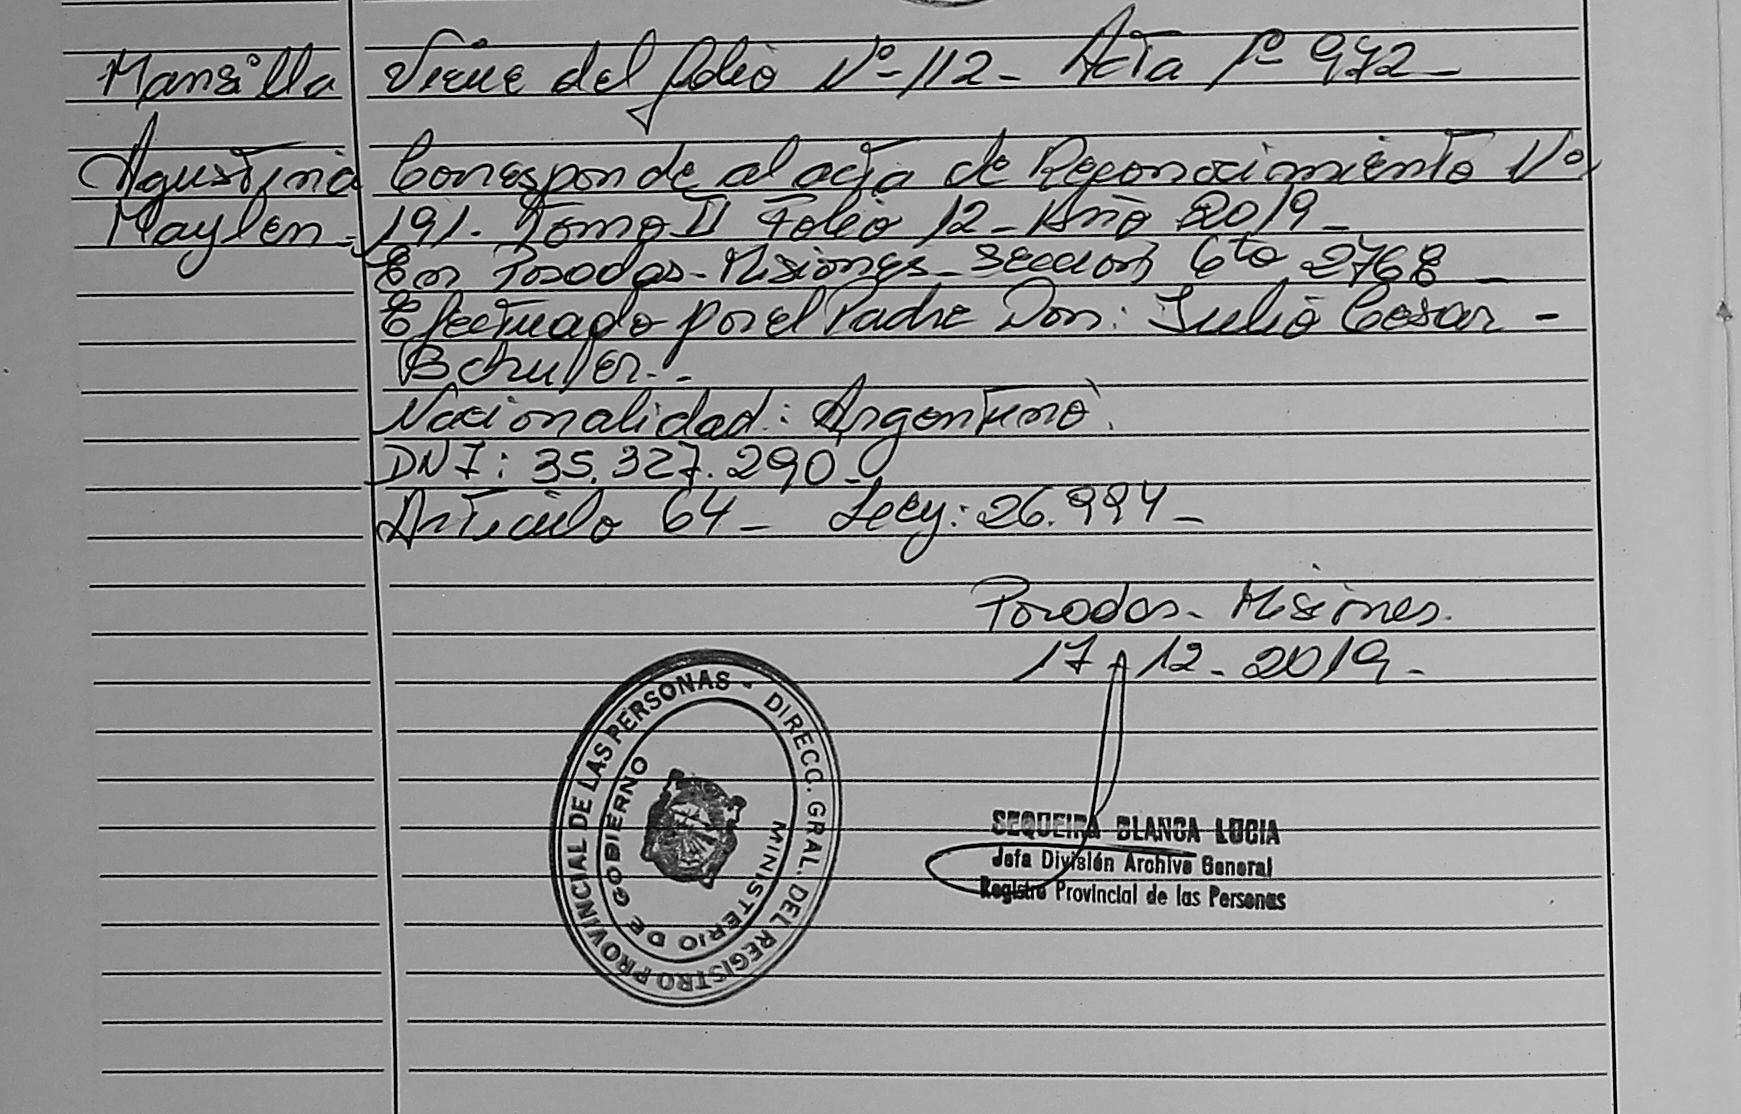 Mansilla
Agustina
Maylen.
Viene del folio Nº-112- Acta Nº 972-
Corresponde al acta de Reconocimiento Nº
191. Tomo II Folio 12- Año 2019-
En Posadas- Misiones- Seccion 6ta 2768-
Efectuado por el Padre Don: Julio Cesar-
Nacionalidad: Argentino.
DNI: 35.327.290-
Articulo 64- Ley: 26.994-
Posadas- Misiones.
17-12-2019-
DIRECC. GRAL. DEL REGISTRO PROVINCIAL DE LAS PERSONAS -
MINISTERIO DE GOBIERNO
SEQUEIRA BLANCA LUCIA
Jefa División Archivo General
Registro Provincial de las Personas